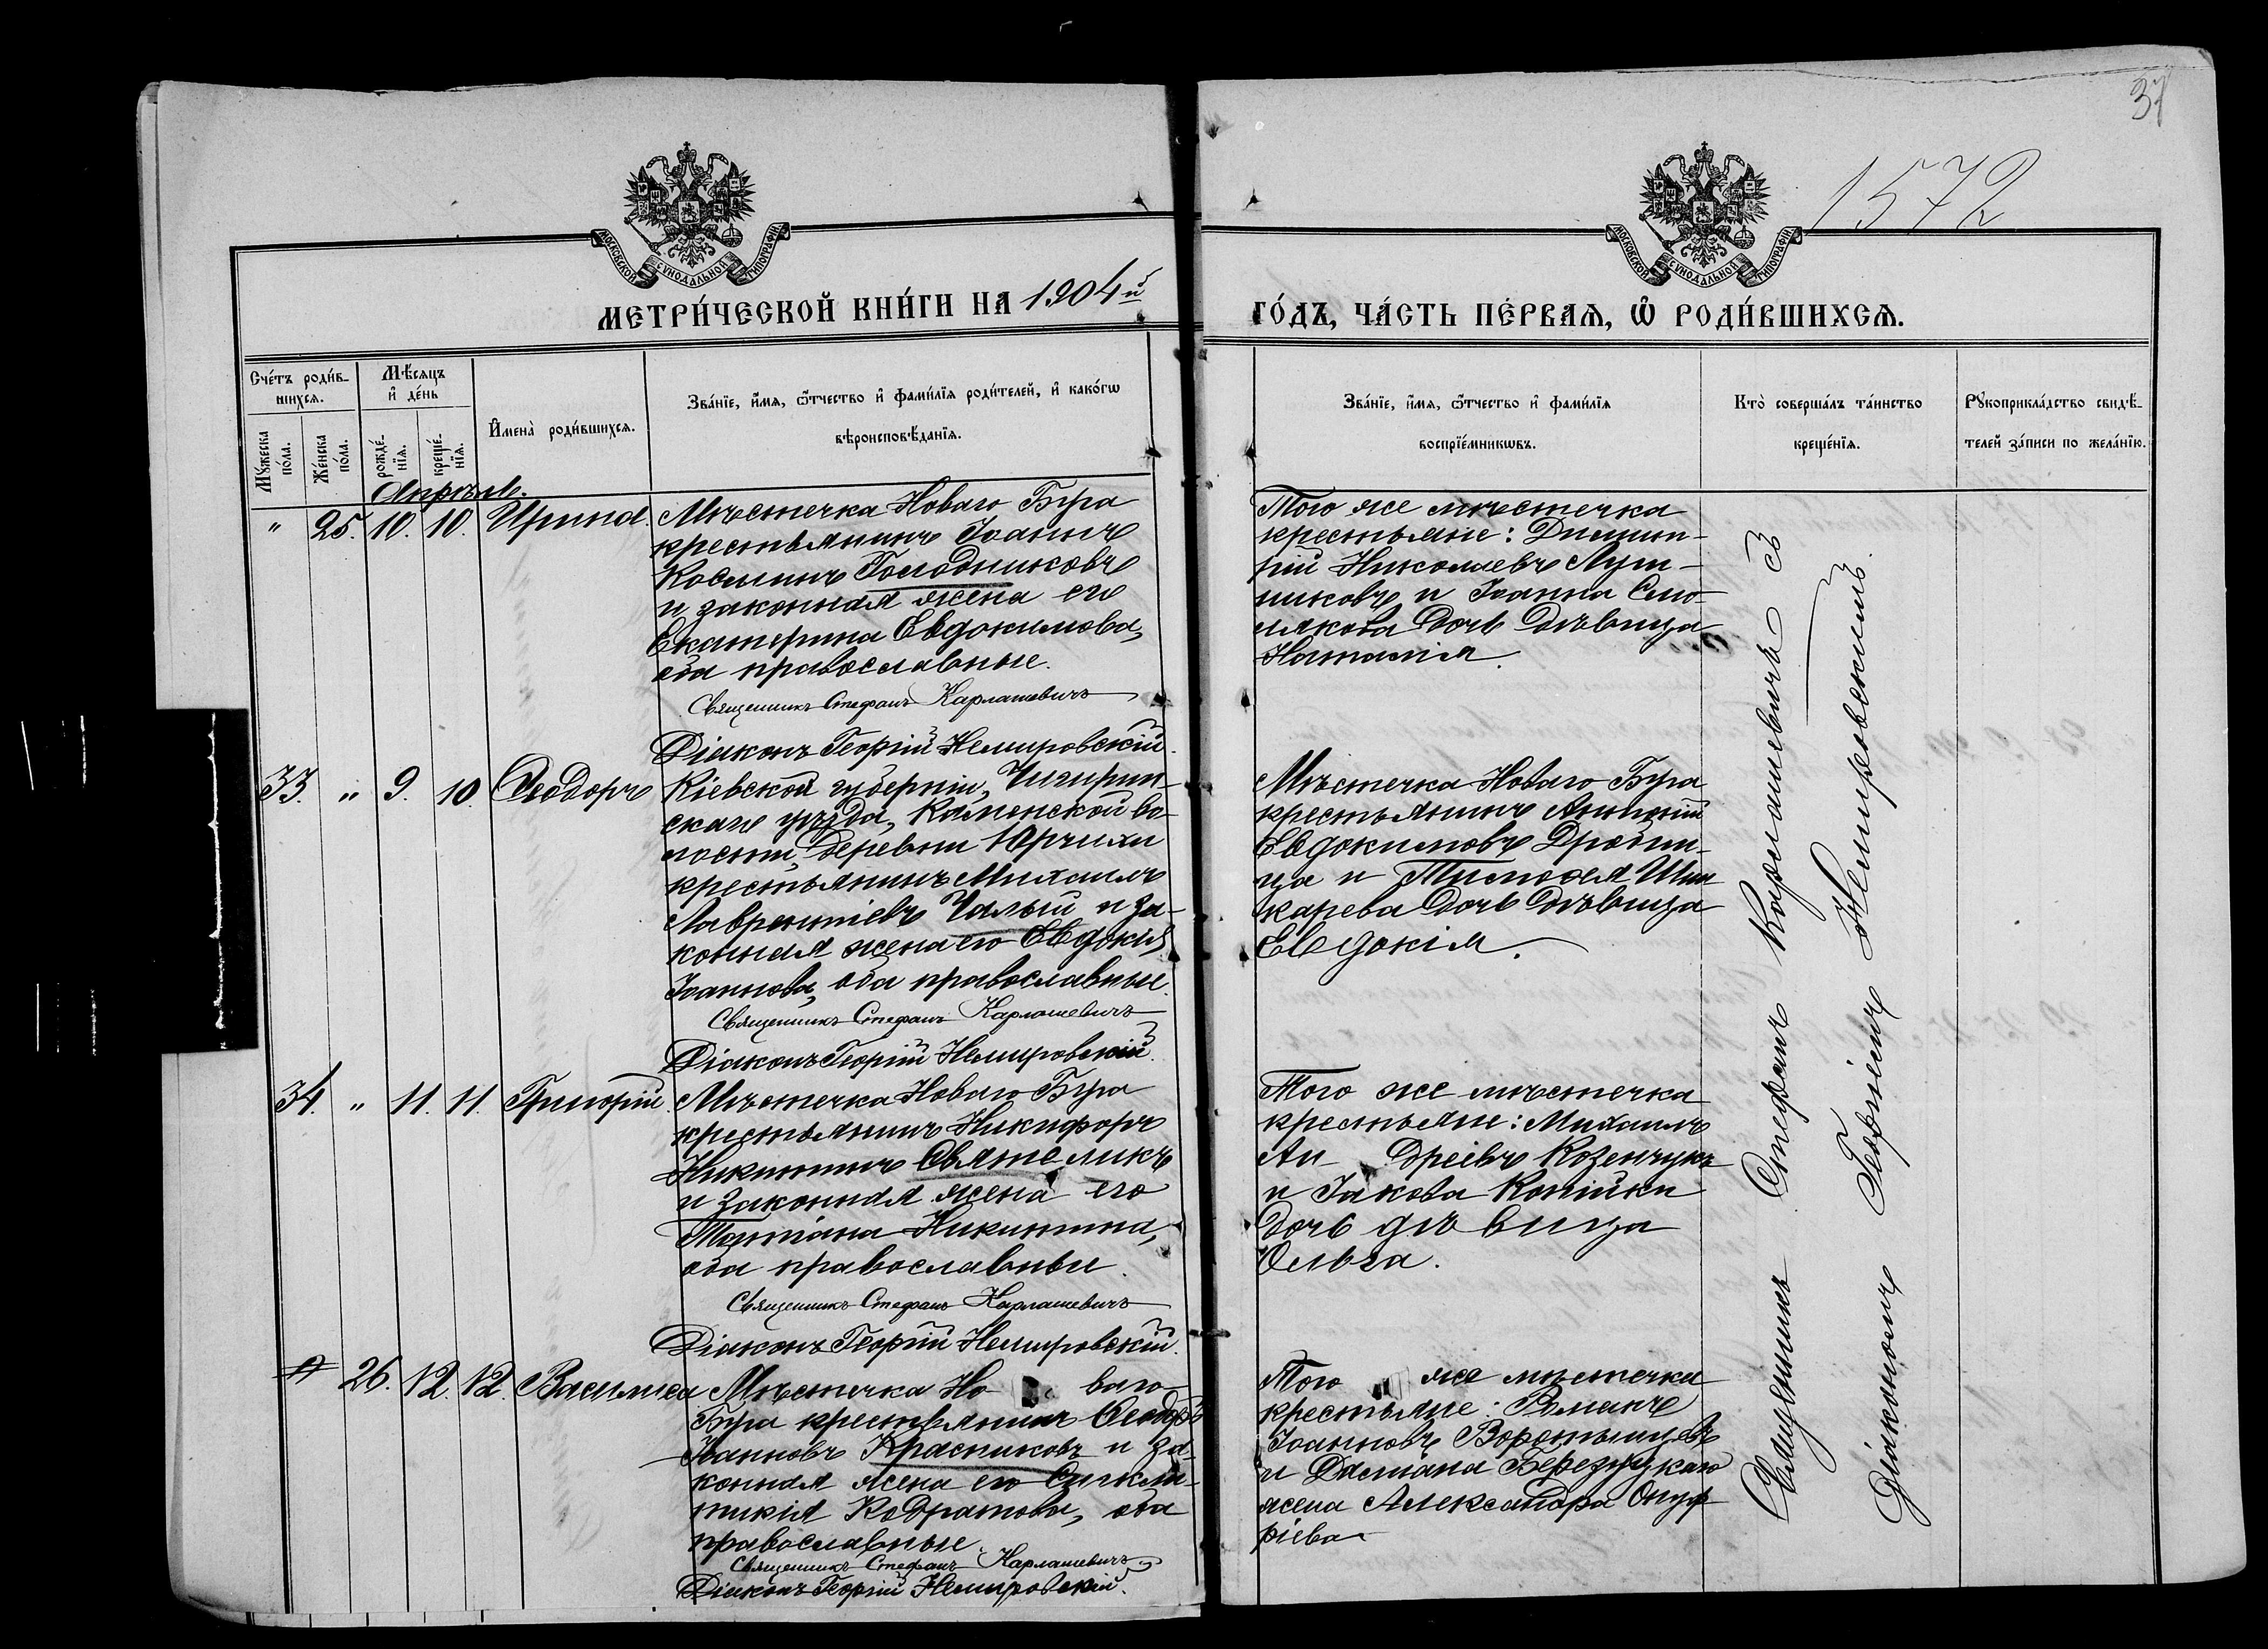 37
1572
МОСКОВСКОЙ СѴНОДАЛЬНОЙ ТИПОГРАФІИ
МОСКОВСКОЙ СѴНОДАЛЬНОЙ ТИПОГРАФІИ
МЕТРИ́ЧЕСКОЙ КНИ́ГИ НА 1904й
ГО́ДЪ, ЧА́СТЬ ПЕ́РВАЯ, Ѡ҆ РОДИ́ВШИХСЯ.
Сче́тъ роди́в-
шихся.
Мꙋжеска по́ла.
Же́нска по́ла.
Мѣ́сяцъ и҆ де́нь
рожде́-
нїя.
креще́-
нїя.
И҆мена̀ роди́вшихся.
Зва́нїе, и҆́мя, ѻ҆́тчество и҆ фами́лїя роди́телей, и҆ како́гѡ
вѣроисповѣ́данїя.
Зва́нїе, и҆́мя, ѻ҆́тчество и҆ фами́лїя
воспрїе́мникѡвъ.
Кто̀ соверша́лъ та́инство
креще́нїя.
Рꙋкоприкла́дство свидѣ́-
телей за́писи по жела́нїю.
Апрѣль.
" 25. 10. 10. Ирина.
Мѣстечка Новаго Буга
крестьянинъ Іоаннъ
КосминъГолодниковъ
и законная жена его
Екатерина Евдокимова,
оба православные.
Священникъ Стефанъ Карлашевичъ
Діаконъ Георгій Немировскій.
Того же мѣстечка
крестьяне: Дмит-
рій Николаевъ Лут-
никовъ и Іоанна Смо-
лякова дочь дѣвица
Наталія.
33. " 9. 10. Ѳеодоръ
Кіевской губерніи, Чигирин-
скаго уѣзда, Каменской во-
лости, деревни Юрчихи
крестьянинъ Михаилъ
Лаврентіевъ Чалый и за-
конная жена его Евдокія
Іоаннова, оба православные.
Священникъ Стефанъ Карлашевичъ
Діаконъ Георгій Немировскій.
Мѣстечка Новаго Буга
крестьянинъ Антоній
Евдокимовъ Дроби-
ца и Тимоѳея Шин-
карева дочь дѣвица
Евдокія.
34. " 11. 11. Григорій.
Мѣстечка Новаго Буга
крестьянинъ Никифоръ
Никитинъ Святеликъ
и законная жена его
Татіана Никитина,
оба православные.
Священникъ Стефанъ Карлашевичъ
Діаконъ Георгій Немировскій.
Того же мѣстечка
крестьяне: Михаилъ
Ан- дреевъ Козенчукъ
и Іакова Копійки
дочь дѣвица
Ольга.
" 26. 12. 12. Василиса
Мѣстечка Но ваго
Буга крестьянинъ Ѳеодоръ
Іоанновъ Красниковъ и за-
конная жена его Синкли-
тикія Кодратова, оба
православные.
Священникъ Стефанъ Карлашевичъ
Діаконъ Георгій Немировскій.
Того же мѣстечка
крестьяне: Романъ
Іоанновъ Воротынцевъ
и Даміана Березуцкаго
жена Александра Онуф-
ріева
Священникъ Стефанъ Карлашевичъ съ
діакономъ Георгіемъ Немировскимъ.